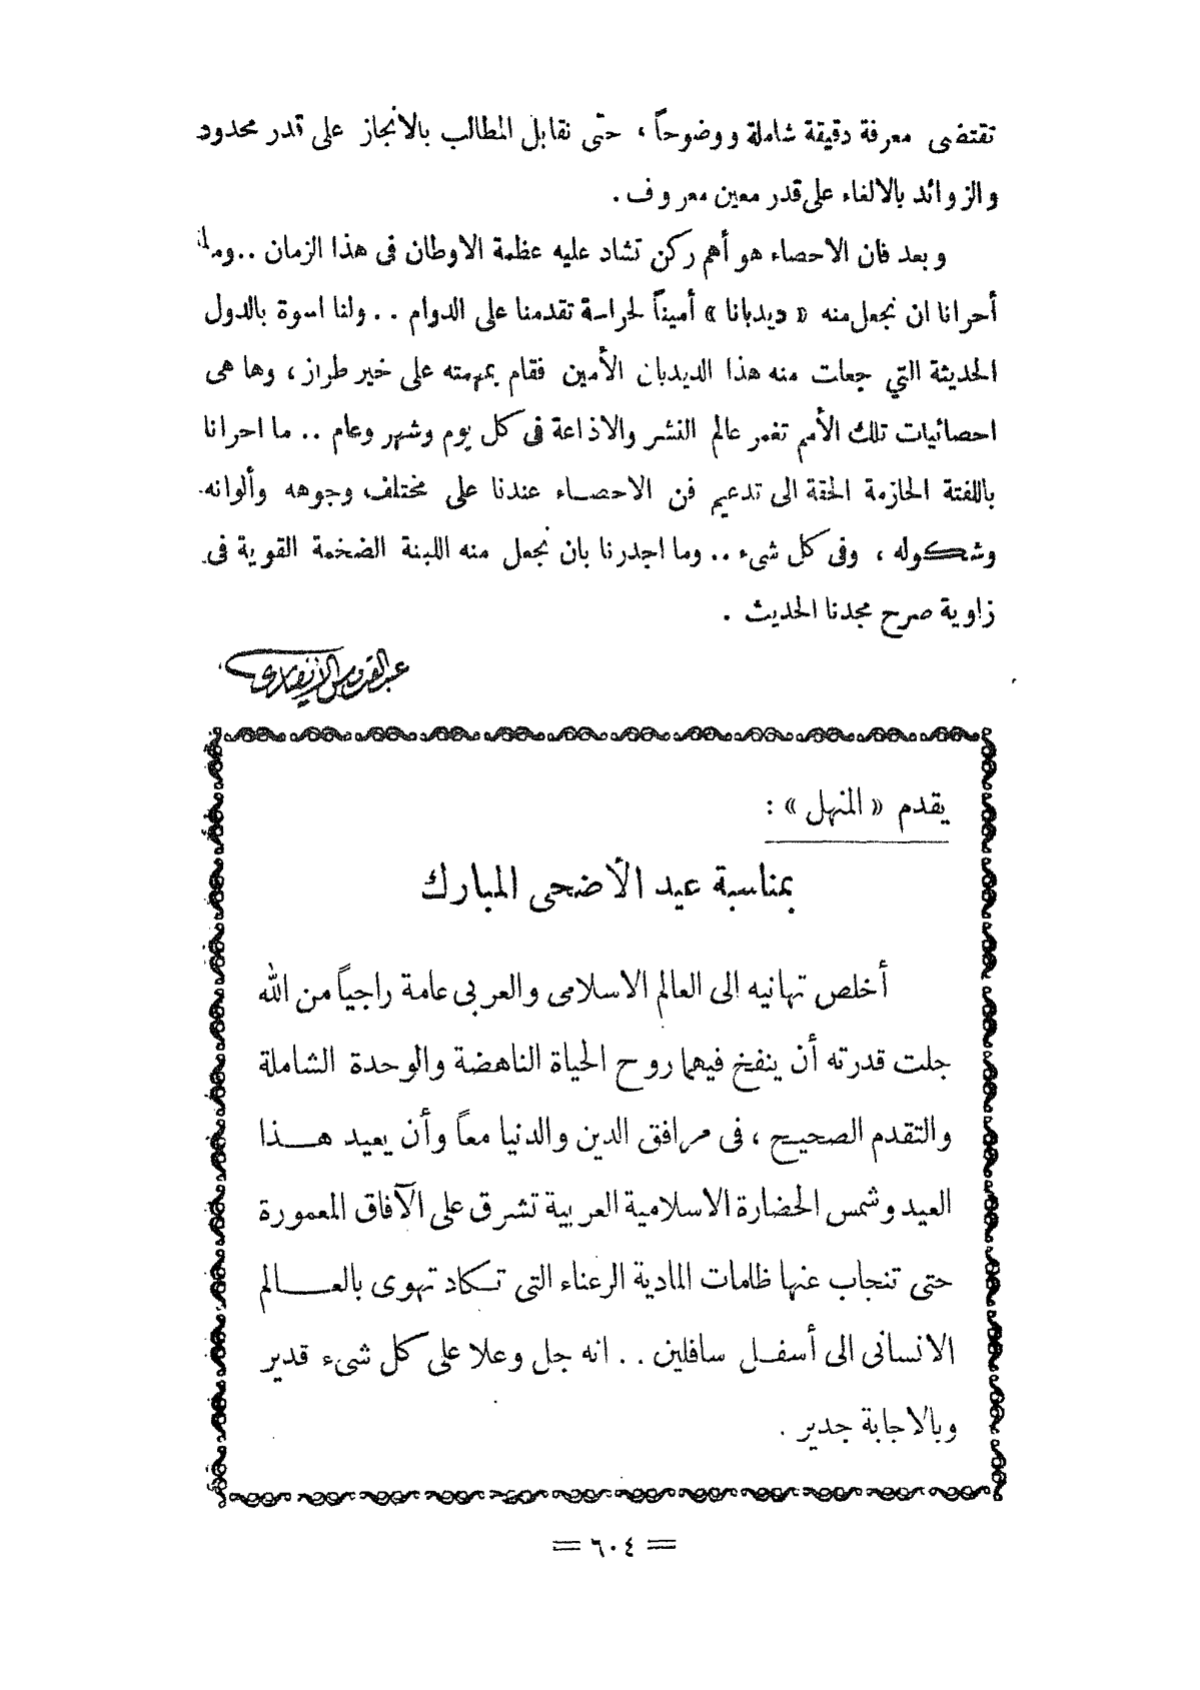 تقتضى معرفة دقيقة شاملة ووضوحاً ، حتّى نقابل المطالب بالانجاز على قدر محدود
والزوائد بالالغاء على قدر معين معروف .
وبعد فان الاحصاء هو أهم ركن تشاد عليه عظمة الاوطان فى هذا الزمان .. وما
أحرانا ان نجعل منه « ديدبانا » أميناً لحراسة تقدمنا على الدوام .. ولنا اسوة بالدول
الحديثة التي جعلت منه هذا الديدبان الأمين فقام بمهمته على خير طراز ، وها هى
احصائيات تلك الأمم تغمر عالم النشر والاذاعة فى كل يوم وشهر وعام .. ما احرانا
باللفتة الحازمة الحقة الى تدعيم فن الاحصاء عندنا على مختلف وجوهه وألوانه
وشكوله ، وفى كل شىء .. وما اجدرنا بان نجعل منه اللبنة الضخمة القوية فى
زاوية صرح مجدنا الحديث .
عبد القدوس الأنصارى
يقدم « المنهل » :
بمناسبة عيد الأضحى المبارك
أخلص تهانيه الى العالم الاسلامى والعربى عامة راجياً من الله
جلت قدرته أن ينفخ فيهما روح الحياة الناهضة والوحدة الشاملة
والتقدم الصحيح ، فى مرافق الدين والدنيا معاً وأن يعيد هـذا
العيد وشمس الحضارة الاسلامية العربية تشرق على الآفاق المعمورة
حتى تنجاب عنها ظلمات المادية الرعناء التى تكاد تهوى بالعـالم
الانسانى الى أسفل سافلين .. انه جل وعلا على كل شىء قدير
وبالاجابة جدير .
= ٦٠٤ =